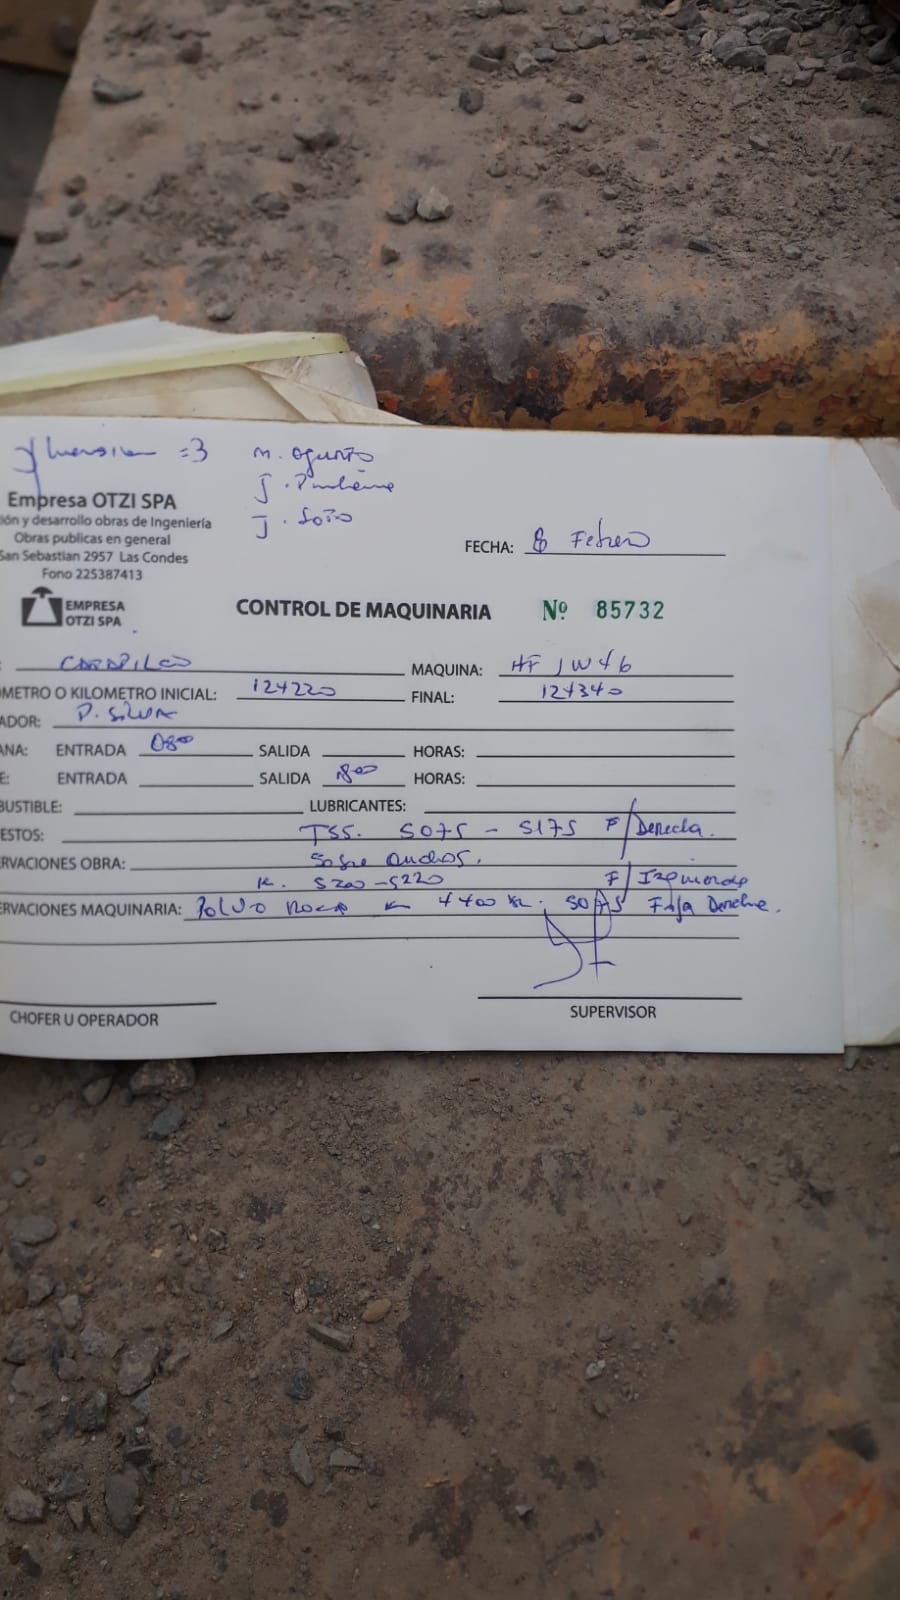 =3 M. Ogusto
Empresa OTZI SPA
J.
ión y desarrollo obras de Ingeniería
J. Soto
Obras publicas en general
San Sebastian 2957 Las Condes
FECHA: 8 Febrero
Fono 225387413
EMPRESA
OTZI SPA
CONTROL DE MAQUINARIA Nº 85732
: CARAPILCO MAQUINA: HF JW46
OMETRO O KILOMETRO INICIAL: 124220 FINAL: 124340
ADOR: P. SILVA
ANA: ENTRADA 0800 SALIDA HORAS:
E: ENTRADA SALIDA 1800 HORAS:
BUSTIBLE: LUBRICANTES:
ESTOS: TSS. 5075 - 5175 F/Derecha.
RVACIONES OBRA: Sobre Anchos.
K. 5200-5220 F/ Izquierda
ERVACIONES MAQUINARIA: Polvo Roca K 4400 5075 Faja Derecha.
CHOFER U OPERADOR
SUPERVISOR